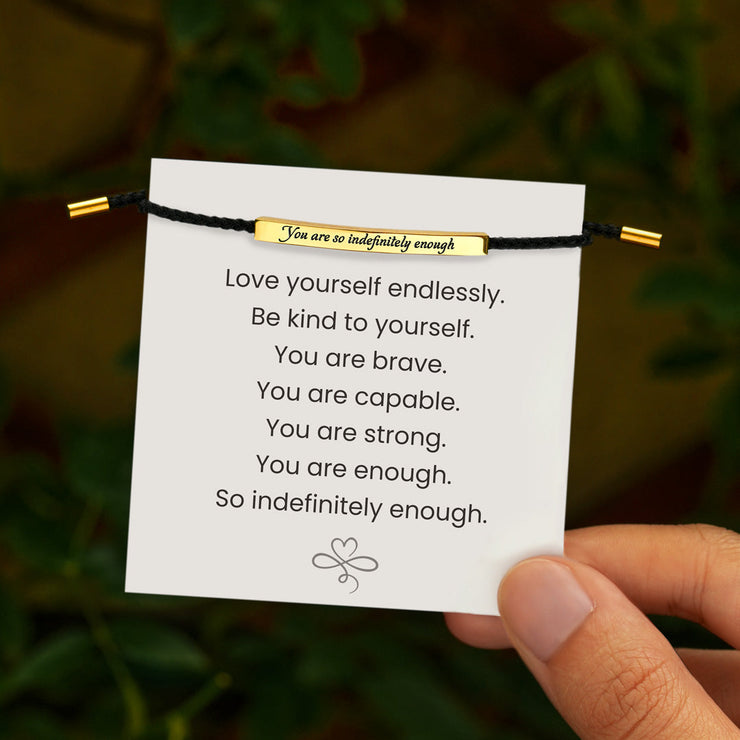 You are so indefinitely enough
Love yourself endlessly.
Be kind to yourself.
You are brave.
You are capable.
You are strong.
You are enough.
So indefinitely enough.